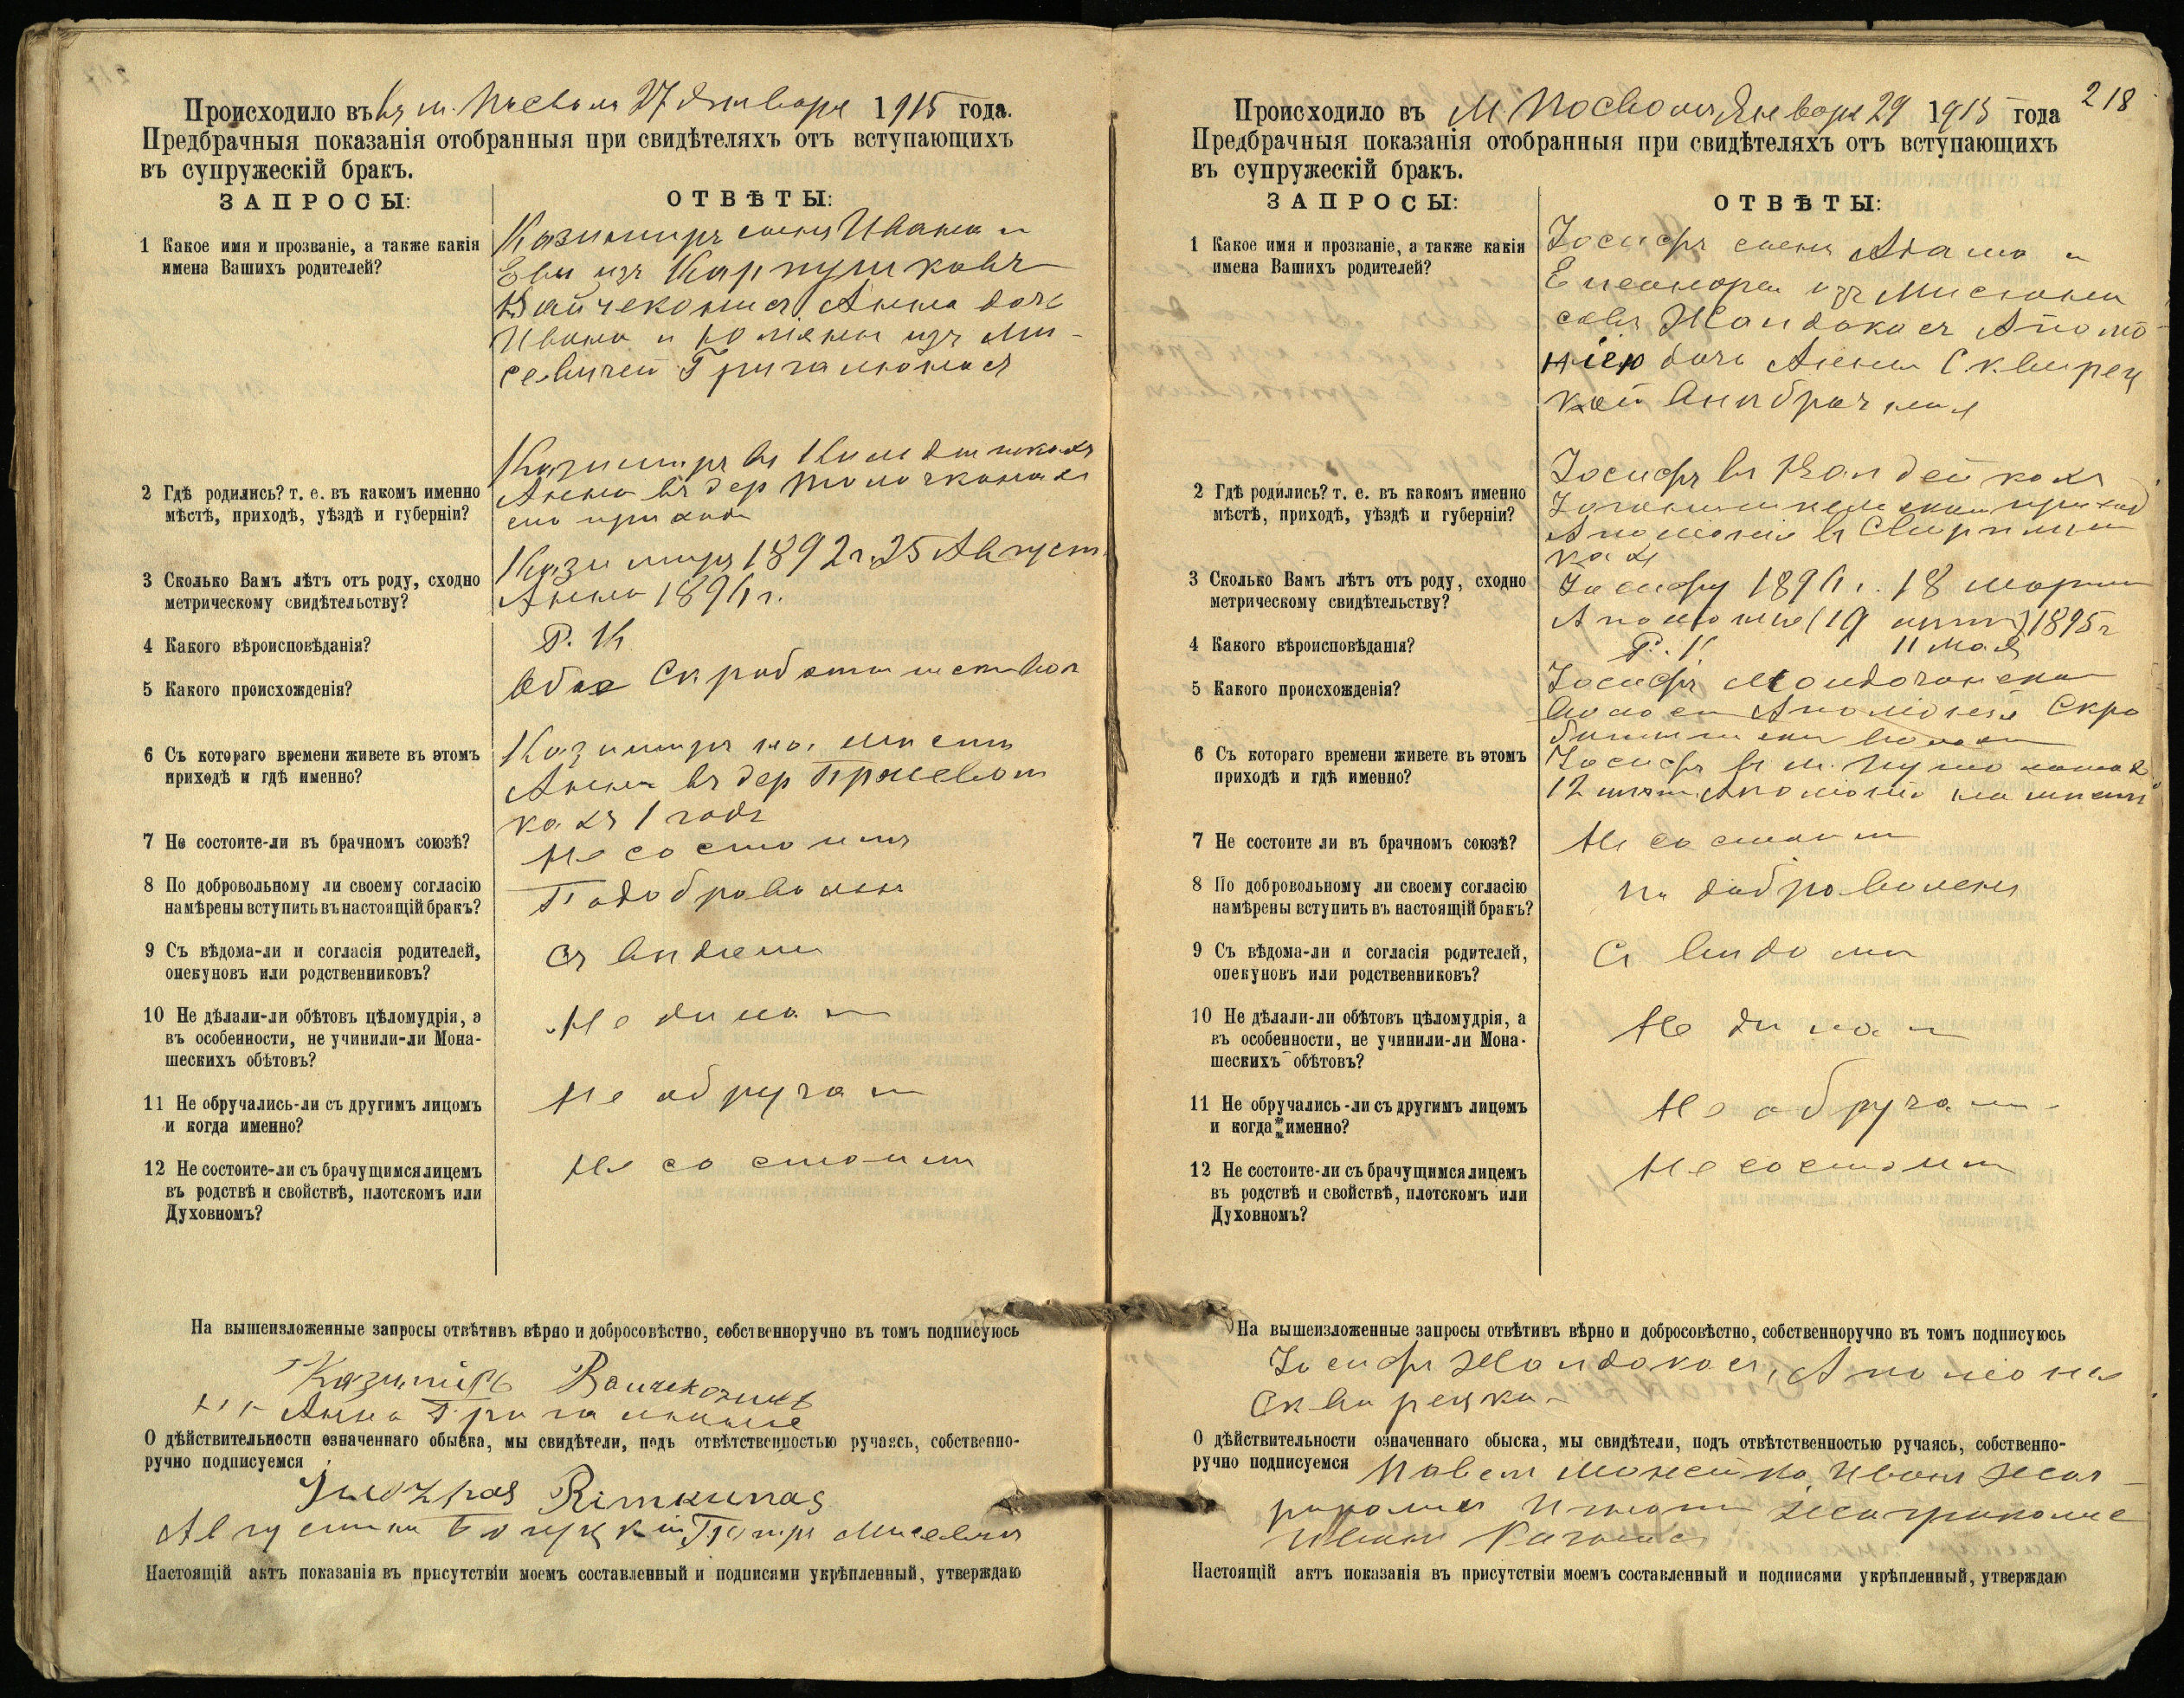 Происходило въ въ м. Посволя 27 Января 1915 года.
Предбрачныя показанія отобранныя при свидѣтеляхъ отъ вступающихъ
въ супружескій бракъ.
ЗАПРОСЫ:
ОТВѢТЫ:
1 Какое имя и прозваніе, а также какія
имена Вашихъ родителей?
Казимиръ сынъ Ивана и
Евы изъ Карпушковъ
Вайчеконисъ Анна дочь
Ивана и Юліяны изъ Ми-
севичей Григалюнася
2 Гдѣ родились? т. е. въ какомъ именно
мѣстѣ, приходѣ, уѣздѣ и губерніи?
Казимиръ въ
Анна въ дер
прихода
3 Сколько Вамъ лѣтъ отъ роду, сходно
метрическому свидѣтельству?
Казимиръ 1892 г. 25 Август
Анна 1894 г.
4 Какого вѣроисповѣданія?
Р. К
5 Какого происхожденія?
Обое
6 Съ котораго времени живете въ этомъ
приходѣ и гдѣ именно?
Казимиръ на мѣстѣ
Анна въ дер
кахъ 1 годъ
7 Не состоите-ли въ брачномъ союзѣ?
Не состоимъ
8 По добровольному ли своему согласію
намѣрены вступить въ настоящій бракъ?
По добровольн
9 Съ вѣдома-ли и согласія родителей,
опекуновъ или родственниковъ?
Съ
10 Не дѣлали-ли обѣтовъ цѣломудрія, а
въ особенности, не учинили-ли Мона-
шескихъ обѣтовъ?
Не дилали
11 Не обручались-ли съ другимъ лицомъ
и когда именно?
Не обручали
12 Не состоите-ли съ брачущимся лицемъ
въ родствѣ и свойствѣ, плотскомъ или
Духовномъ?
Не состоим
На вышеизложенные запросы отвѣтивъ вѣрно и добросовѣстно, собственноручно въ томъ подписуюсь
Казиміръ
Анна
О дѣйствительности означеннаго обыска, мы свидѣтели, подъ отвѣтственностью ручаясь, собственно-
ручно подписуемся
Juozpas Rimkunas
Августинъ Петръ Мисевичъ
Настоящій актъ показанія въ присутствіи моемъ составленный и подписями укрѣпленный, утверждаю
218
Происходило въ м Посволя Января 29 1915 года
Предбрачныя показанія отобранныя при свидѣтеляхъ отъ вступающихъ
въ супружескій бракъ.
ЗАПРОСЫ:
ОТВѢТЫ:
1 Какое имя и прозваніе, а также какія
имена Вашихъ родителей?
Іосифъ сынъ Адама и
Елеоноры изъ Мисюна
совъ Жалдокасъ Аполо-
нією дочь Анны Сквирец
кой внибрачная
2 Гдѣ родились? т. е. въ какомъ именно
мѣстѣ, приходѣ, уѣздѣ и губерніи?
Іосифъ въ
приход
Аполонія в
кахъ
3 Сколько Вамъ лѣтъ отъ роду, сходно
метрическому свидѣтельству?
Іосифу 1894 г. 18 марта
Аполоніи (19 лѣтъ) 1895 г
11 мая
4 Какого вѣроисповѣданія?
Р. К
5 Какого происхожденія?
Іосифъ
волости Аполонія Скро
волости
6 Съ котораго времени живете въ этомъ
приходѣ и гдѣ именно?
Іосифъ въ
12 лѣтъ Аполонія на мѣстѣ
7 Не состоите ли въ брачномъ союзѣ?
Не состоим
8 По добровольному ли своему согласію
намѣрены вступить въ настоящій бракъ?
По добровольн
9 Съ вѣдома-ли и согласія родителей,
опекуновъ или родственниковъ?
С видома
10 Не дѣлали-ли обѣтовъ цѣломудрія, а
въ особенности, не учинили-ли Мона-
шескихъ обѣтовъ?
Не дилали
11 Не обручались-ли съ другимъ лицемъ
и когда именно?
Не обручали
12 Не состоите-ли съ брачущимся лицемъ
въ родствѣ и свойствѣ, плотскомъ или
Духовномъ?
Не состоим
На вышеизложенные запросы отвѣтивъ вѣрно и добросовѣстно, собственноручно въ томъ подписуюсь
Іосифъ Жалдокасъ, Аполонія
Сквирецка
О дѣйствительности означеннаго обыска, мы свидѣтели, подъ отвѣтственностью ручаясь, собственно-
ручно подписуемся Павелъ Можейко Иванъ
Иванъ
Настоящій актъ показанія въ присутствіи моемъ составленный и подписями укрѣпленный, утверждаю